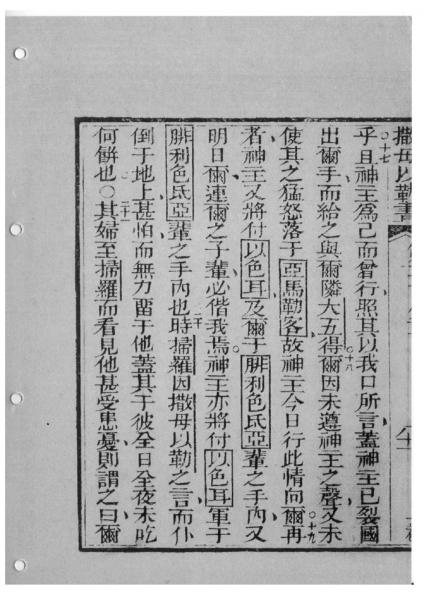 撒母以勒書
○十七
乎且神主為己而曾行照其以我口所言蓋神主已裂國
出爾手而給之與爾隣大五得○十八爾因未遵神主之聲又未
使其之猛怒落于亞馬勒客故神主今日行此情向爾○十九再
者神主又將付以色耳及爾于腓利色氏亞輩之手內又
明日爾連爾之子輩必偕我焉○神主亦將付以色耳軍于
腓利色氏亞輩之手內也二十時掃羅因撒母以勒之言而仆
倒于地上甚怕而無力留于他蓋其于彼全日全夜未吃
何餅也○二十一其婦至掃羅而看見他甚受患憂則謂之曰爾